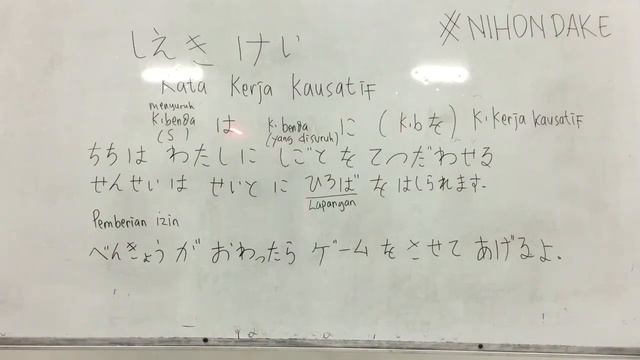 しえきけい
#NIHONDAKE
Kata Kerja Kausatif
menyuruh
K.benda は K.benda に (K.b を) K.Kerja kausatif
(S) (yang disuruh)
ちちは わたしに しごとを てつだわせる
せんせいは せいとに ひろばを はしられます.
Lapangan
Pemberian izin
べんきょうが おわったら ゲームを させて あげるよ.